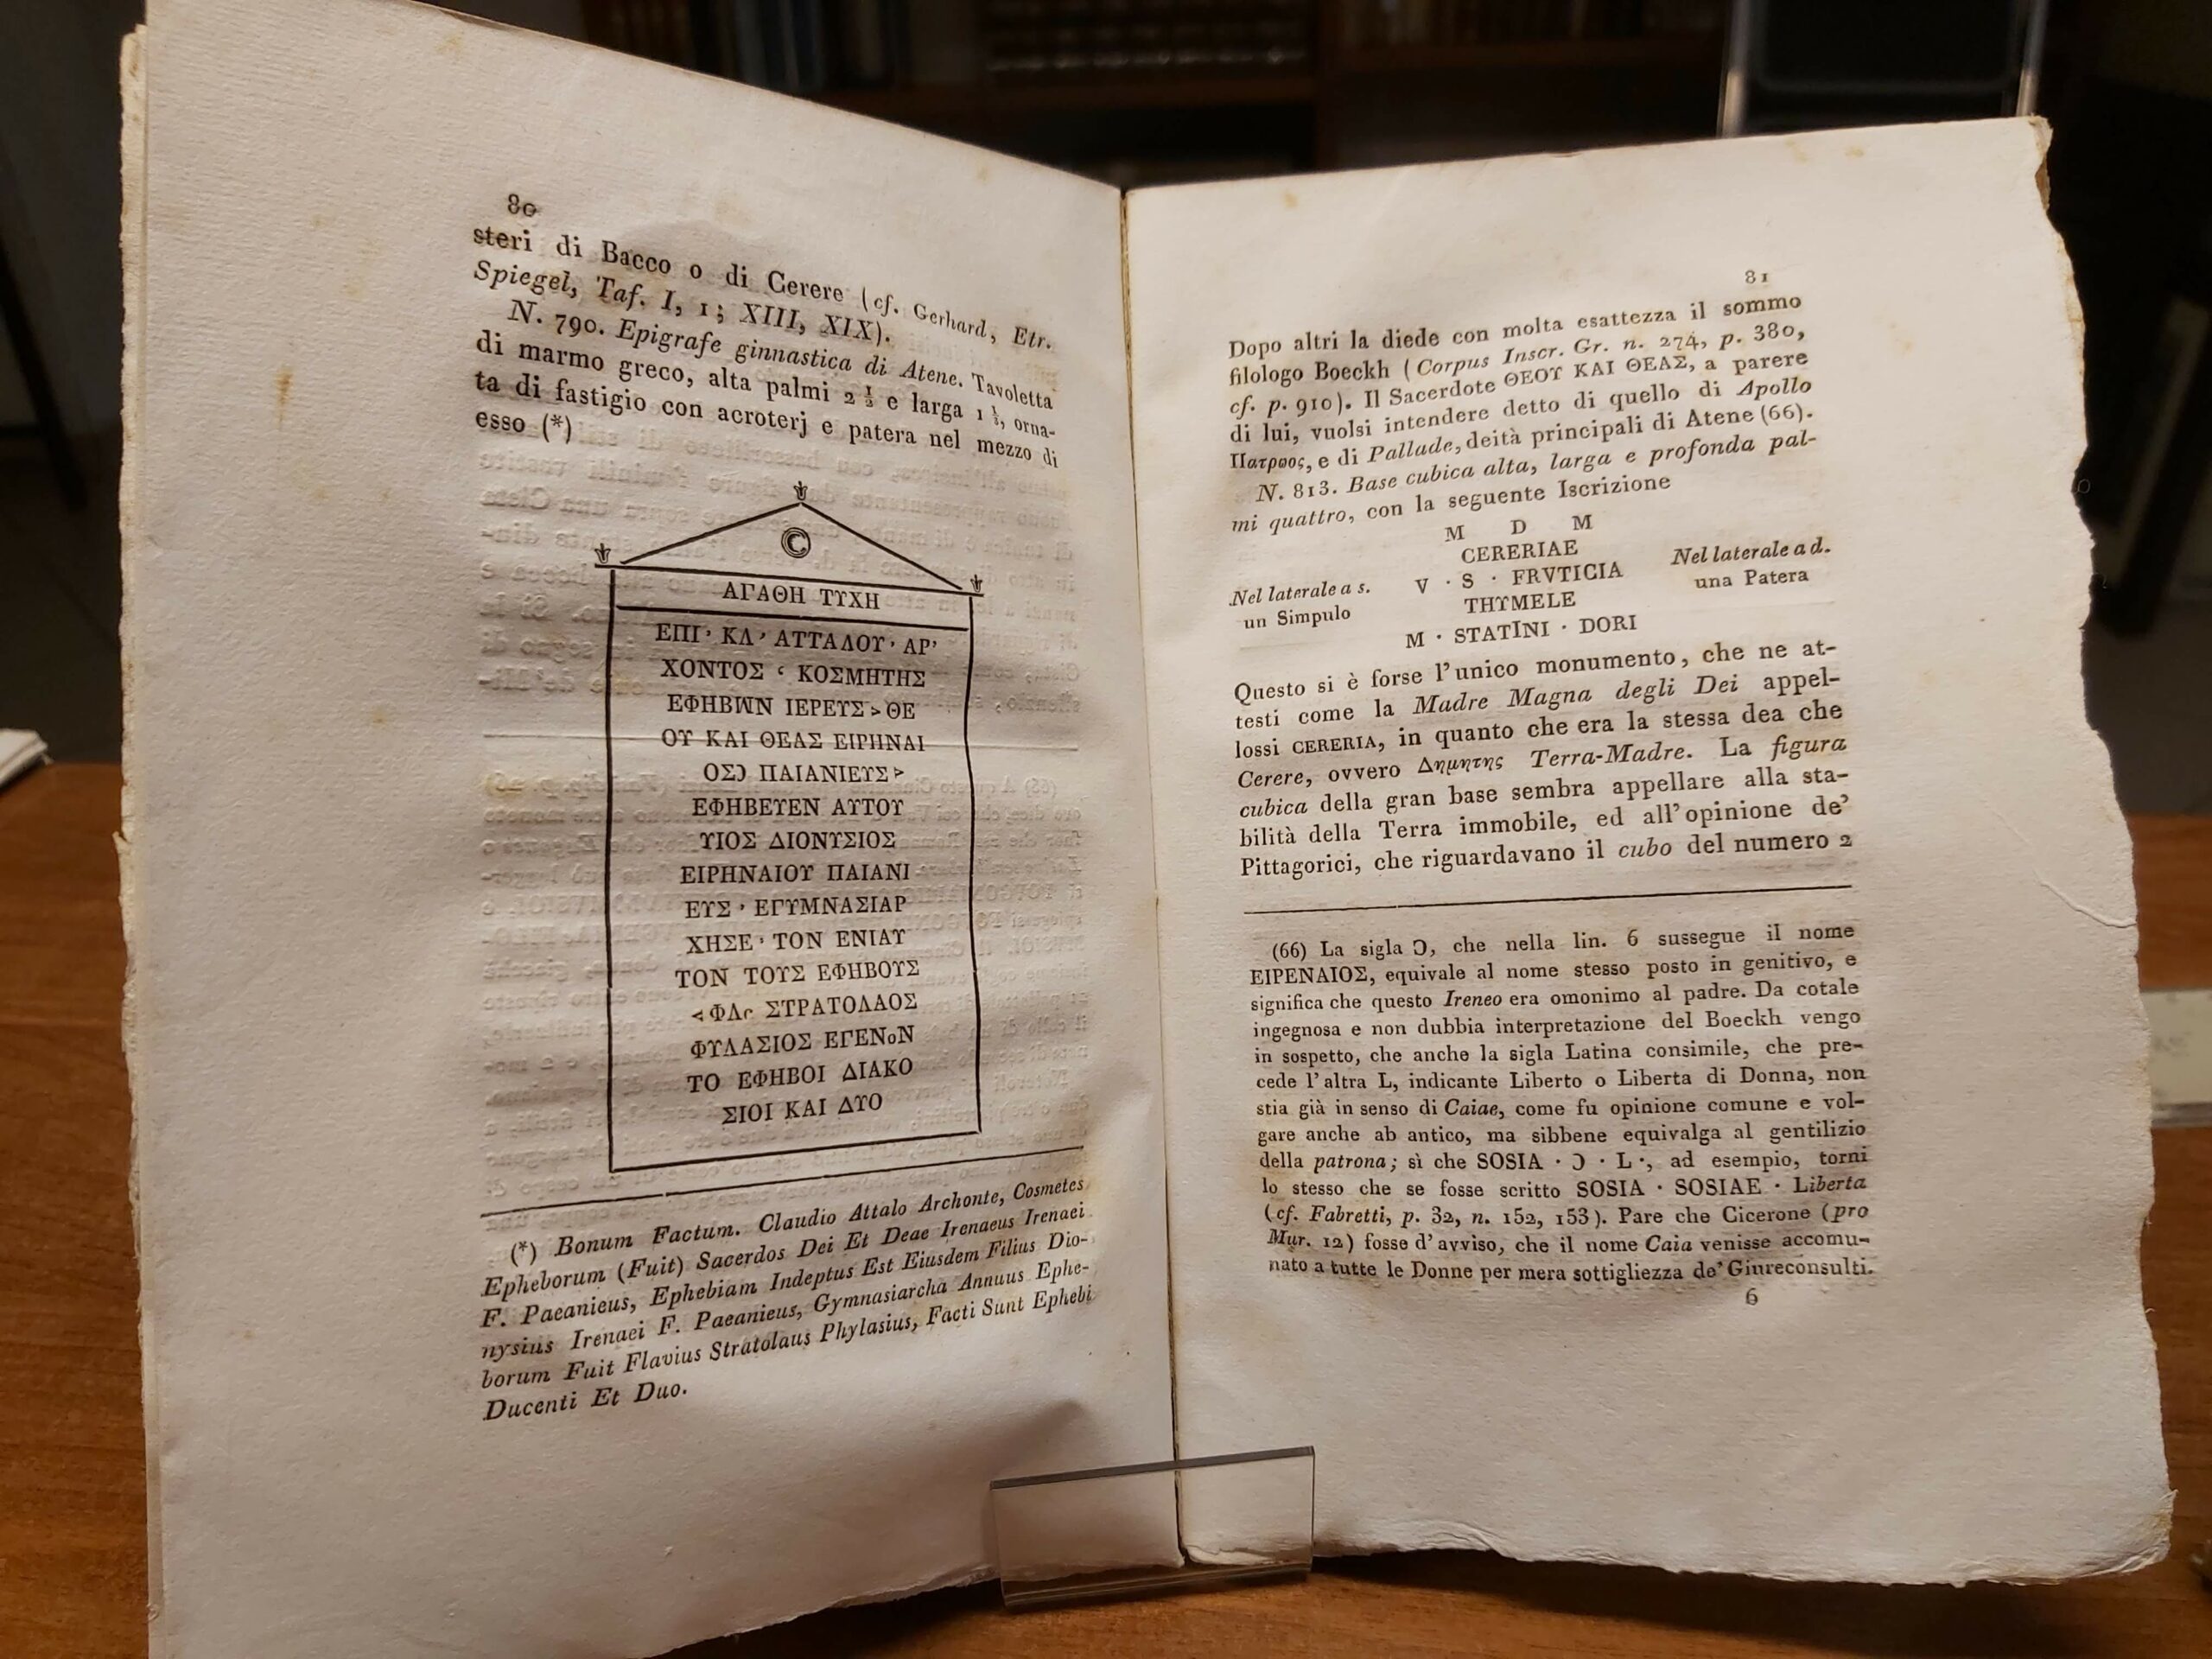 80
steri di Bacco o di Cerere (cf. Gerhard, Etr.
Spiegel, Taf. I, 1; XIII, XIX).
N. 790. Epigrafe ginnastica di Atene. Tavoletta
di marmo greco, alta palmi 2 ½ e larga 1 ⅓, orna-
ta di fastigio con acroterj e patera nel mezzo di
esso (*)
ΑΓΑΘΗ ΤΥΧΗ
ΕΠΙ · ΚΛ · ΑΤΤΑΛΟΥ · ΑΡ ·
ΧΟΝΤΟΣ ‹ ΚΟΣΜΗΤΗΣ
ΕΦΗΒΩΝ ΙΕΡΕΥΣ > ΘΕ
ΟΥ ΚΑΙ ΘΕΑΣ ΕΙΡΗΝΑΙ
ΟΣƆ ΠΑΙΑΝΙΕΥΣ >
ΕΦΗΒΕΥΕΝ ΑΥΤΟΥ
ΥΙΟΣ ΔΙΟΝΥΣΙΟΣ
ΕΙΡΗΝΑΙΟΥ ΠΑΙΑΝΙ
ΕΥΣ · ΕΓΥΜΝΑΣΙΑΡ
ΧΗΣΕ · ΤΟΝ ΕΝΙΑΥ
ΤΟΝ ΤΟΥΣ ΕΦΗΒΟΥΣ
< ΦΛc ΣΤΡΑΤΟΛΑΟΣ
ΦΥΛΑΣΙΟΣ ΕΓΕΝοΝ
ΤΟ ΕΦΗΒΟΙ ΔΙΑΚΟ
ΣΙΟΙ ΚΑΙ ΔΥΟ
(*) Bonum Factum. Claudio Attalo Archonte, Cosmetes
Epheborum (Fuit) Sacerdos Dei Et Deae Irenaeus Irenaei
F. Paeanieus, Ephebiam Indeptus Est Eiusdem Filius Dio-
nysius Irenaei F. Paeanieus, Gymnasiarcha Annuus Ephe-
borum Fuit Flavius Stratolaus Phylasius, Facti Sunt Ephebi
Ducenti Et Duo.
81
Dopo altri la diede con molta esattezza il sommo
filologo Boeckh (Corpus Inscr. Gr. n. 274, p. 380,
cf. p. 910). Il Sacerdote ΘΕΟΥ ΚΑΙ ΘΕΑΣ, a parere
di lui, vuolsi intendere detto di quello di Apollo
Πατρωος, e di Pallade, deità principali di Atene (66).
N. 813. Base cubica alta, larga e profonda pal-
mi quattro, con la seguente Iscrizione
M D M
CERERIAE
Nel laterale a s. V · S · FRVTICIA Nel laterale a d.
un Simpulo THYMELE una Patera
M · STATINI · DORI
Questo si è forse l'unico monumento, che ne at-
testi come la Madre Magna degli Dei appel-
lossi CERERIA, in quanto che era la stessa dea che
Cerere, ovvero Δημητης Terra-Madre. La figura
cubica della gran base sembra appellare alla sta-
bilità della Terra immobile, ed all'opinione de'
Pittagorici, che riguardavano il cubo del numero 2
(66) La sigla Ɔ, che nella lin. 6 sussegue il nome
ΕΙΡΕΝΑΙΟΣ, equivale al nome stesso posto in genitivo, e
significa che questo Ireneo era omonimo al padre. Da cotale
ingegnosa e non dubbia interpretazione del Boeckh vengo
in sospetto, che anche la sigla Latina consimile, che pre-
cede l'altra L, indicante Liberto o Liberta di Donna, non
stia già in senso di Caiae, come fu opinione comune e vol-
gare anche ab antico, ma sibbene equivalga al gentilizio
della patrona; sì che SOSIA · Ɔ · L ·, ad esempio, torni
lo stesso che se fosse scritto SOSIA · SOSIAE · Liberta
(cf. Fabretti, p. 32, n. 152, 153). Pare che Cicerone (pro
Mur. 12) fosse d'avviso, che il nome Caia venisse accomu-
nato a tutte le Donne per mera sottigliezza de' Giureconsulti.
6